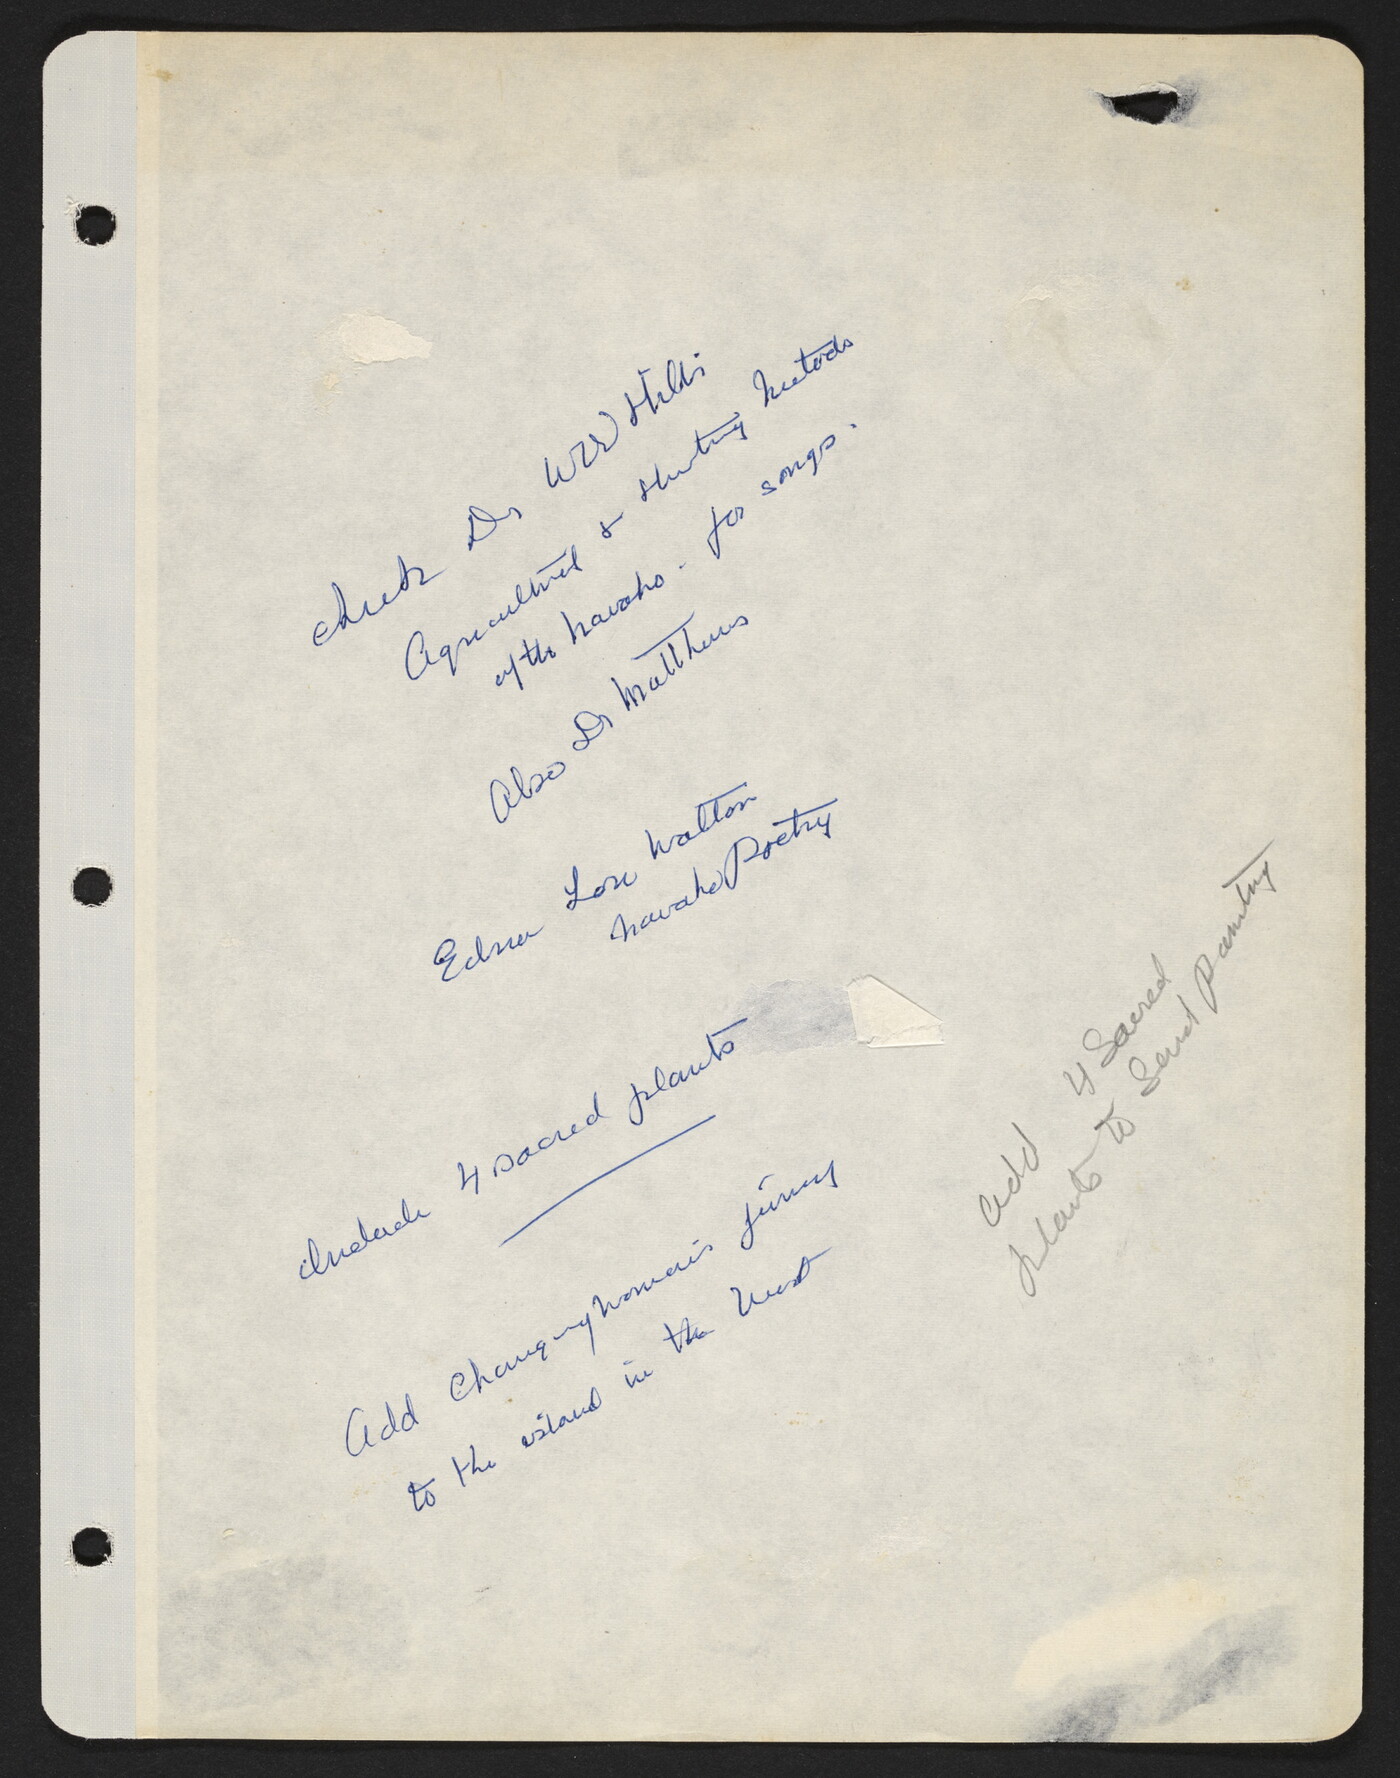 check Dr WW Hill's
Agricultural & Hunting Metods
of the Navaho - for songs.
Also Dr Matthews
Edna Lou Walton
Navaho Poetry
include 4 sacred plants
Add Changing Woman's jurney
to the island in the West
add 4 Sacred
plants to Sand painting